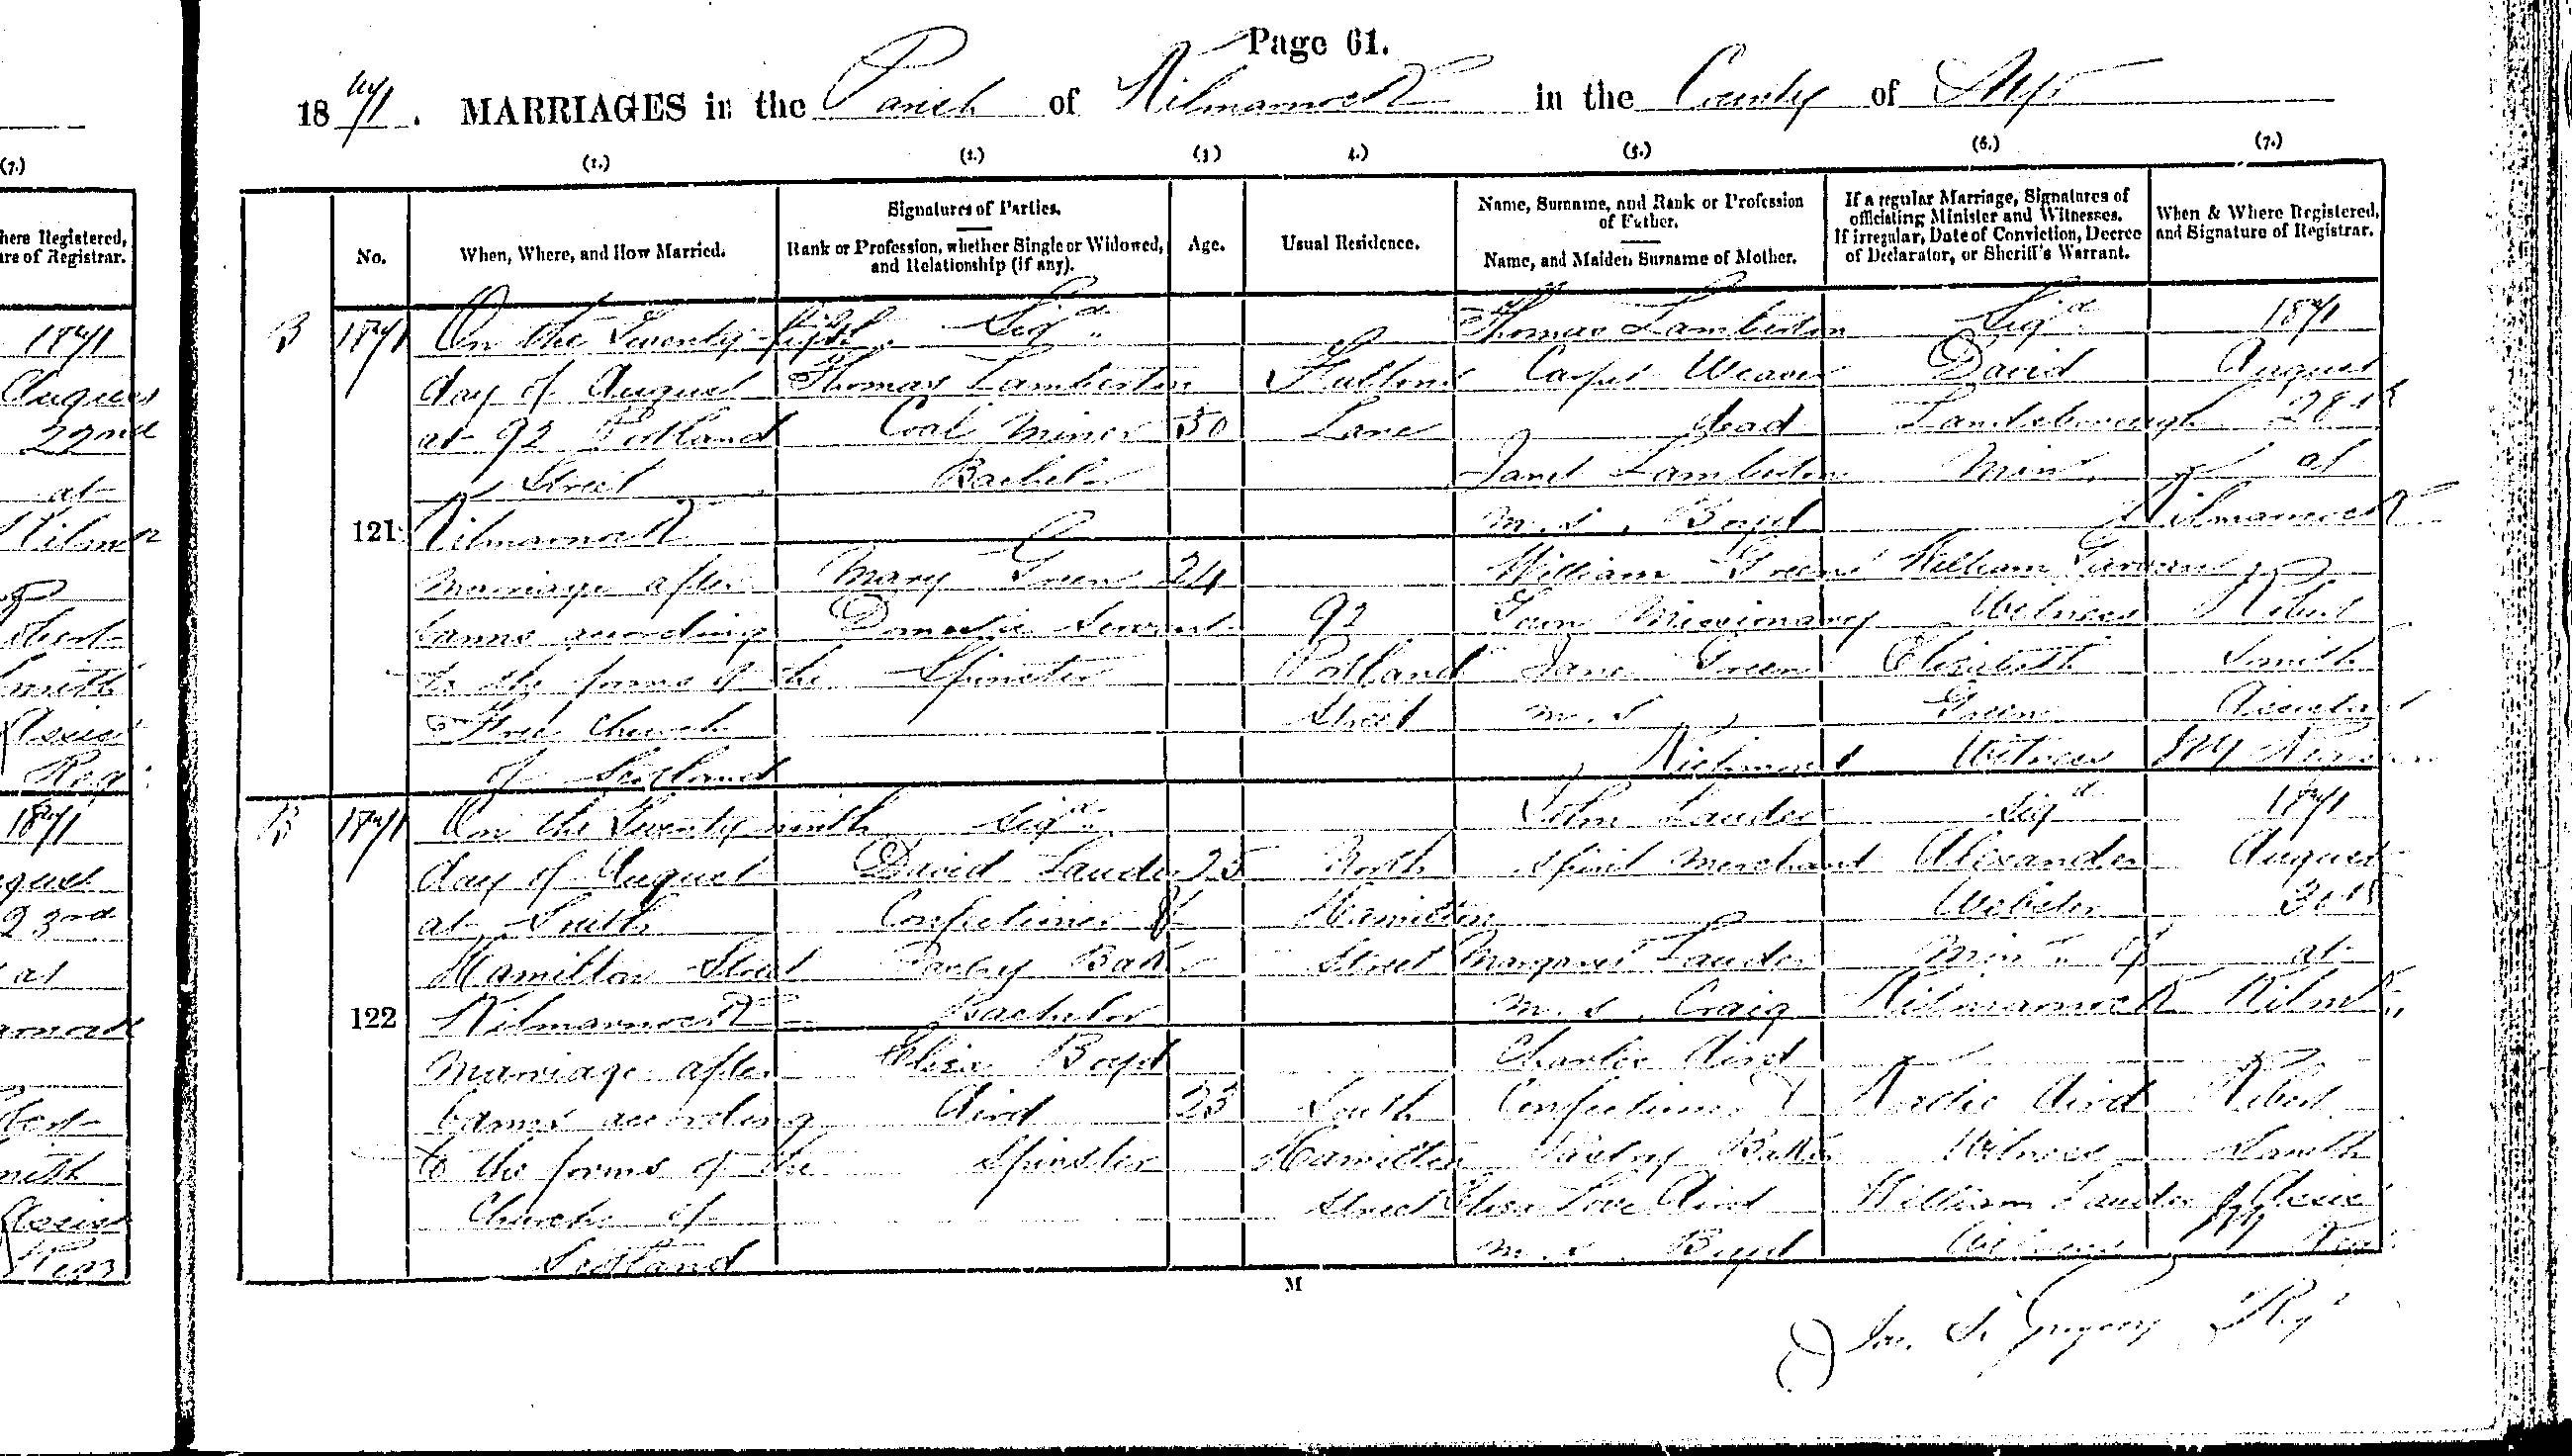 Page 61.
1871. MARRIAGES in the Parish of Kilmarnock in the County of Ayr
(7.) (1.) (2.) (3) 4.) (5.) (6.) (7.)
here Registered,
re of Registrar.
No.
When, Where, and How Married.
Signatures of Parties.
Rank or Profession, whether Single or Widowed,
and Relationship (if any).
Age.
Usual Residence.
Name, Surname, and Rank or Profession
of Father.
Name, and Maiden Surname of Mother.
If a regular Marriage, Signatures of
officiating Minister and Witnesses.
If irregular, Date of Conviction, Decree
of Declarator, or Sheriff's Warrant.
When & Where Registered,
and Signature of Registrar.
1871
August
22nd
at
Kilmk
Smith
Assist
Reg
B
1871
121
On the Twenty-fifth
day of August
at 92 Portland
Street
Kilmarnock
marriage after
banns according
to the forms of the
Free Church
of Scotland
Sigd.
Thomas Lamberton
Coal Miner
Bachelr
Mary Green
Domestic Servant
Spinster
30
24
Fultons
Lane
92
Portland
Street
Thomas Lamberton
Carpet Weaver
dead
Janet Lamberton
m.s. Boyd
William Green
Town Missionary
Jane Green
m.s.
Richmond
Sigd.
David
Landsborough
Min.
William
Witness
Elizabeth
Green
Witness
1871
August
28th
at
Kilmarnock
Robert
Smith
Assistant
Registrar
1871
August
23rd
at
Smith
Assist
Reg
B
1871
122
On the Twenty ninth
day of August
at South
Hamilton Street
Kilmarnock
Marriage after
banns according
to the forms of the
Church of
Scotland
Sigd.
David Lauder
Confectioner &
Pastry Baker
Bachelor
Eliza Boyd
Aird
Spinster
25
23
North
Hamilton
Street
South
Hamilton
Street
John Lauder
Spirit Merchant
Margaret Lauder
m.s. Craig
Charles Aird
Confectioner &
Pastry Baker
Eliza Love Aird
m.s. Boyd
Sigd
Alexander
Webster
Minr. of
Kilmarnock
Aird
Witness
William Lauder
Witness
1871
August
30th
at
Kilmk.
Robert
Smith
Assist
Reg
M
Gregory Regr